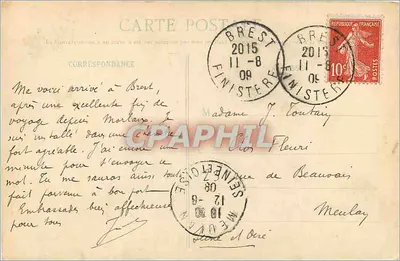 CARTE POSTALE
CORRESPONDANCE
BREST
2015
11-8
09
FINISTERE
BREST
2015
11-8
09
FINISTERE
REPUBLIQUE FRANCAISE
10
POSTES
Me voici arrivé à Brest,
après une excellente
voyage depuis Morlaix. Je
suis installé dans une
fort agréable. J'ai encore une
minute pour t'envoyer ce
mot. Tu me sauras aussi
fait parvenir à bon port
Embrassades bien affectueuses
pour tous
Madame J. Toutain
Fleuri
rue de Beauvais
Meulan
Seine et Oise
MEULAN
12-8
09
SEINE ET OISE
CPAPHIL